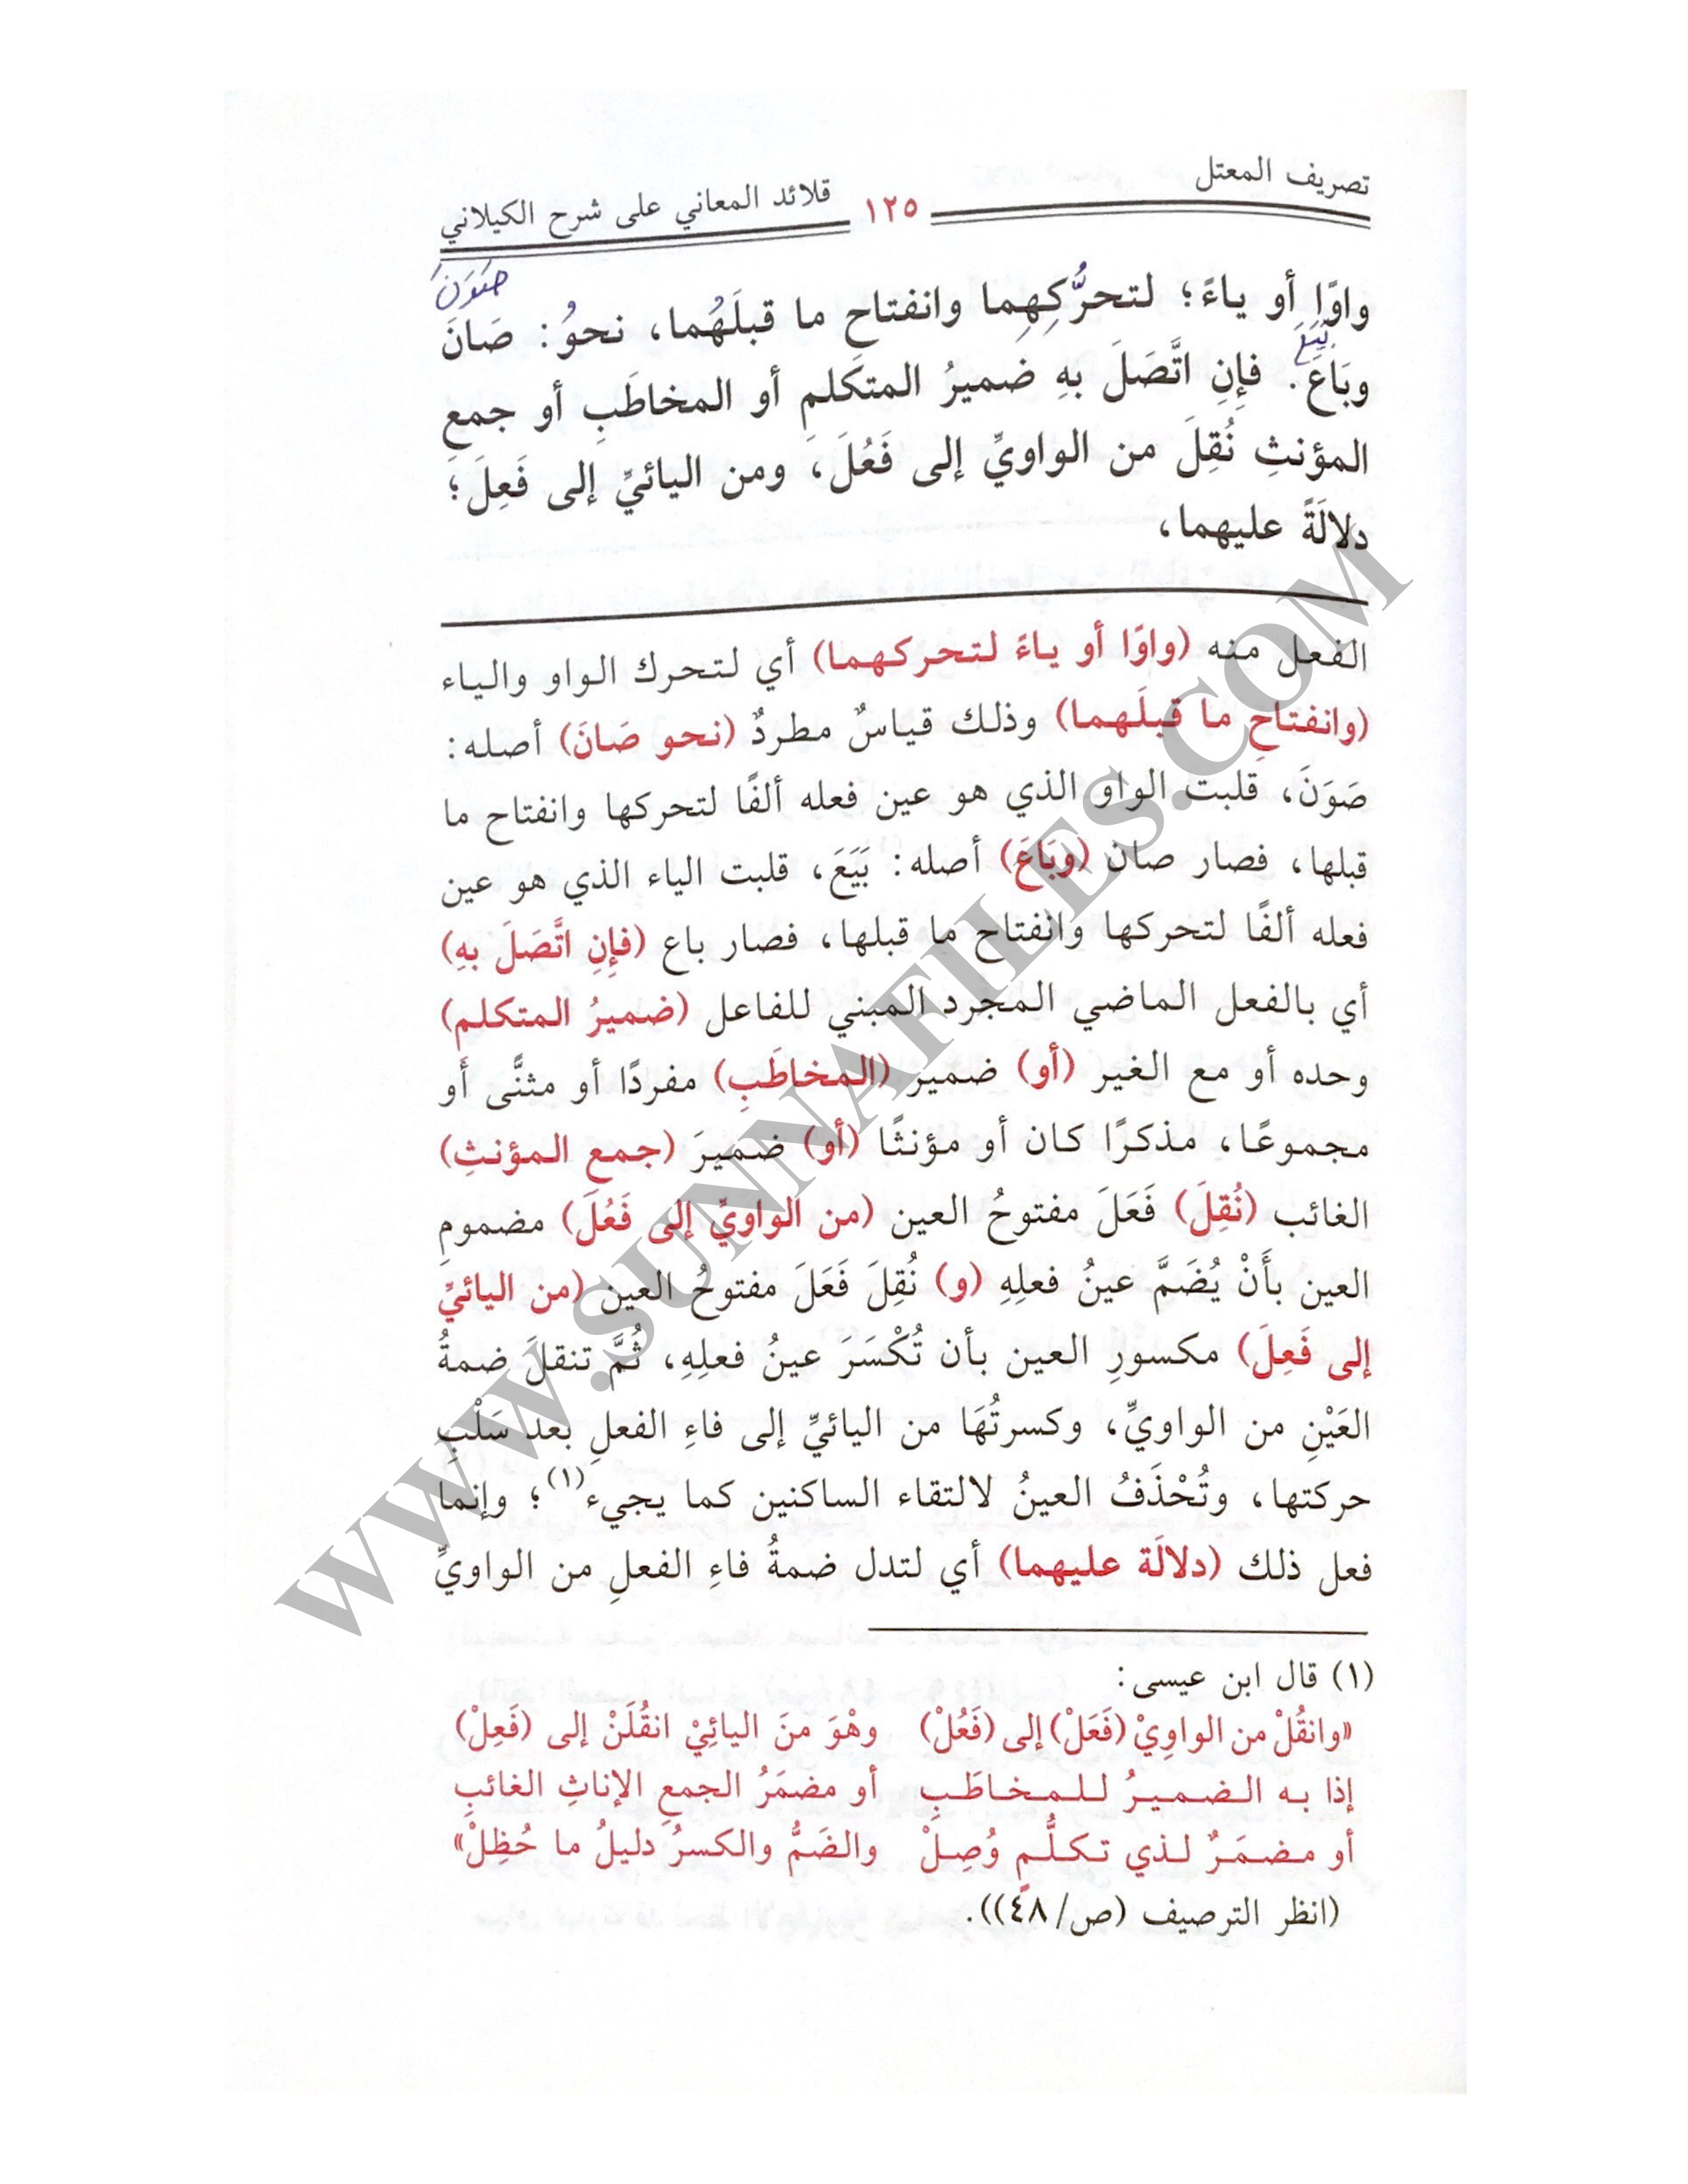 تصريف المعتل ١٢٥ قلائد المعاني على شرح الكيلاني
صَوَنَ
واوًا أو ياءً؛ لتحرُّكِهِما وانفتاحِ ما قبلَهُما، نحوُ: صَانَ
بَيَعَ
وبَاعَ. فإِنِ اتَّصَلَ بهِ ضميرُ المتكلمِ أو المخاطَبِ أو جمعِ
المؤنثِ نُقِلَ من الواويِّ إلى فَعُلَ، ومن اليائيِّ إلى فَعِلَ؛
دلالَةً عليهما،
الفعل منه (واوًا أو ياءً لتحركهما) أي لتحرك الواو والياء
(وانفتاحِ ما قبلَهما) وذلك قياسٌ مطردٌ (نحو صَانَ) أصله:
صَوَنَ، قلبت الواو الذي هو عين فعله ألفًا لتحركها وانفتاح ما
قبلها، فصار صان (وبَاعَ) أصله: بَيَعَ، قلبت الياء الذي هو عين
فعله ألفًا لتحركها وانفتاح ما قبلها، فصار باع (فإِنِ اتَّصَلَ بهِ)
أي بالفعل الماضي المجرد المبني للفاعل (ضميرُ المتكلم)
وحده أو مع الغير (أو) ضمير (المخاطَبِ) مفردًا أو مثنًّى أو
مجموعًا، مذكرًا كان أو مؤنثًا (أو) ضميرَ (جمع المؤنثِ)
الغائب (نُقِلَ) فَعَلَ مفتوحُ العين (من الواويِّ إلى فَعُلَ) مضمومِ
العين بأَنْ يُضَمَّ عينُ فعلِهِ (و) نُقِلَ فَعَلَ مفتوحُ العين (من اليائيِّ
إلى فَعِلَ) مكسورِ العين بأن تُكْسَرَ عينُ فعلِهِ، ثُمَّ تنقلَ ضمةُ
العَيْنِ من الواويِّ، وكسرتُهَا من اليائيِّ إلى فاءِ الفعلِ بعد سَلْبِ
حركتها، وتُحْذَفُ العينُ لالتقاء الساكنين كما يجيء(١)؛ وإنما
فعل ذلك (دلالَة عليهما) أي لتدل ضمةُ فاءِ الفعلِ من الواويِّ
(١) قال ابن عيسى:
«وانقُلْ من الواوِيْ (فَعَلْ) إلى (فَعُلْ) وهْوَ منَ اليائِيْ انقُلَنْ إلى (فَعِلْ)
إذا به الضميرُ للمخاطَبِ أو مضمَرُ الجمعِ الإناثِ الغائبِ
أو مضمَرٌ لذي تكلُّمٍ وُصِلْ والضَمُّ والكسرُ دليلُ ما حُظِلْ»
(انظر الترصيف (ص/٤٨)).
WWW.SUNNAFILES.COM